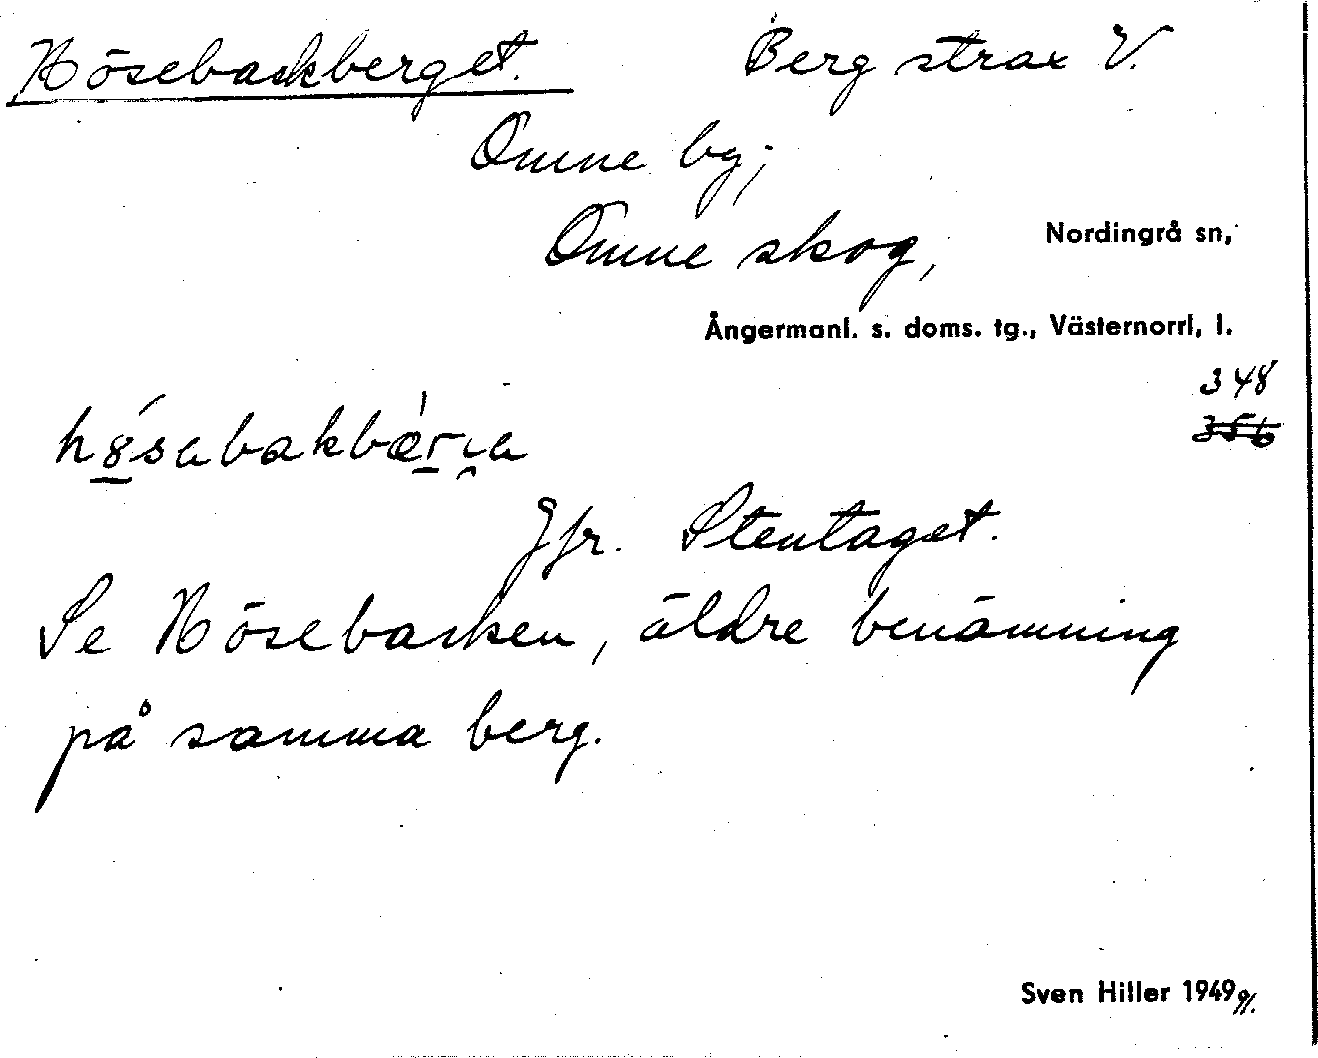 Hösebackberget. Berg strax V.
Omne by;
Omne skog, Nordingrå sn,
Ångermanl. s. doms. tg., Västernorrl, l.
348
356
Jfr. Stentaget.
Se Hösebacken, äldre benämning
på samma berg.
Sven Hiller 1949